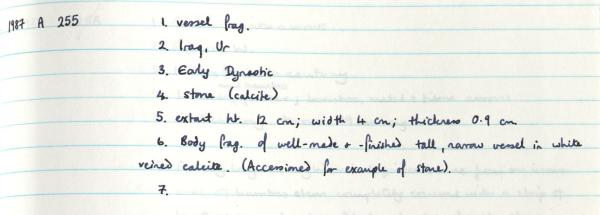 1987 A 255 1. vessel frag.
2. Iraq, Ur
3. Early Dynastic
4. stone (calcite)
5. extant ht. 12 cm; width 4 cm; thickness 0.9 cm
6. Body frag. of well-made & -finished tall, narrow vessel in white
veined calcite. (Accessioned for example of stone).
7.